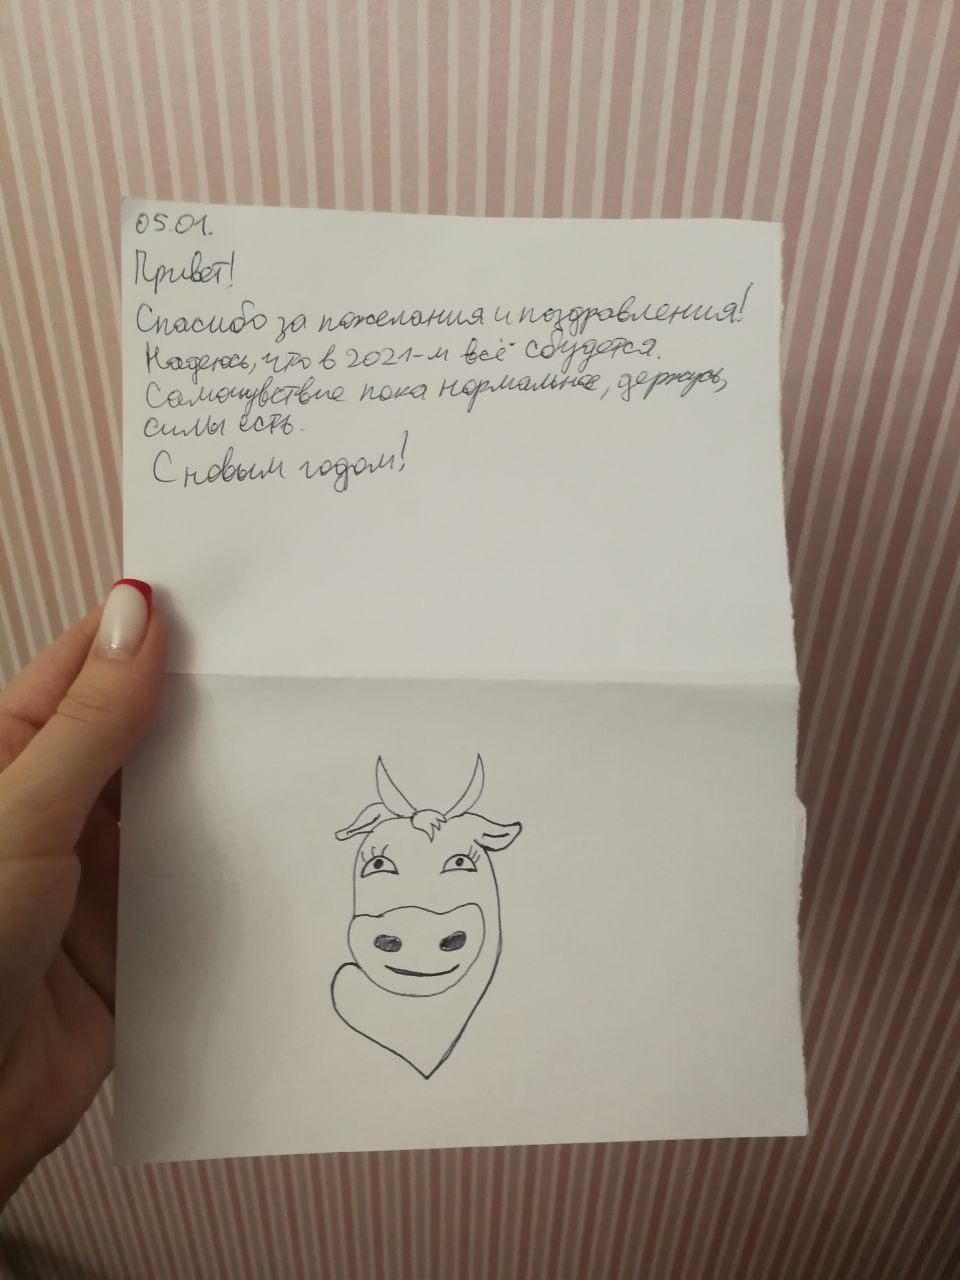 05.01.
Привет!
Спасибо за пожелания и поздравления!
Надеюсь, что в 2021-м всё сбудется.
Самочувствие пока нормальное, держусь,
силы есть.
С новым годом!